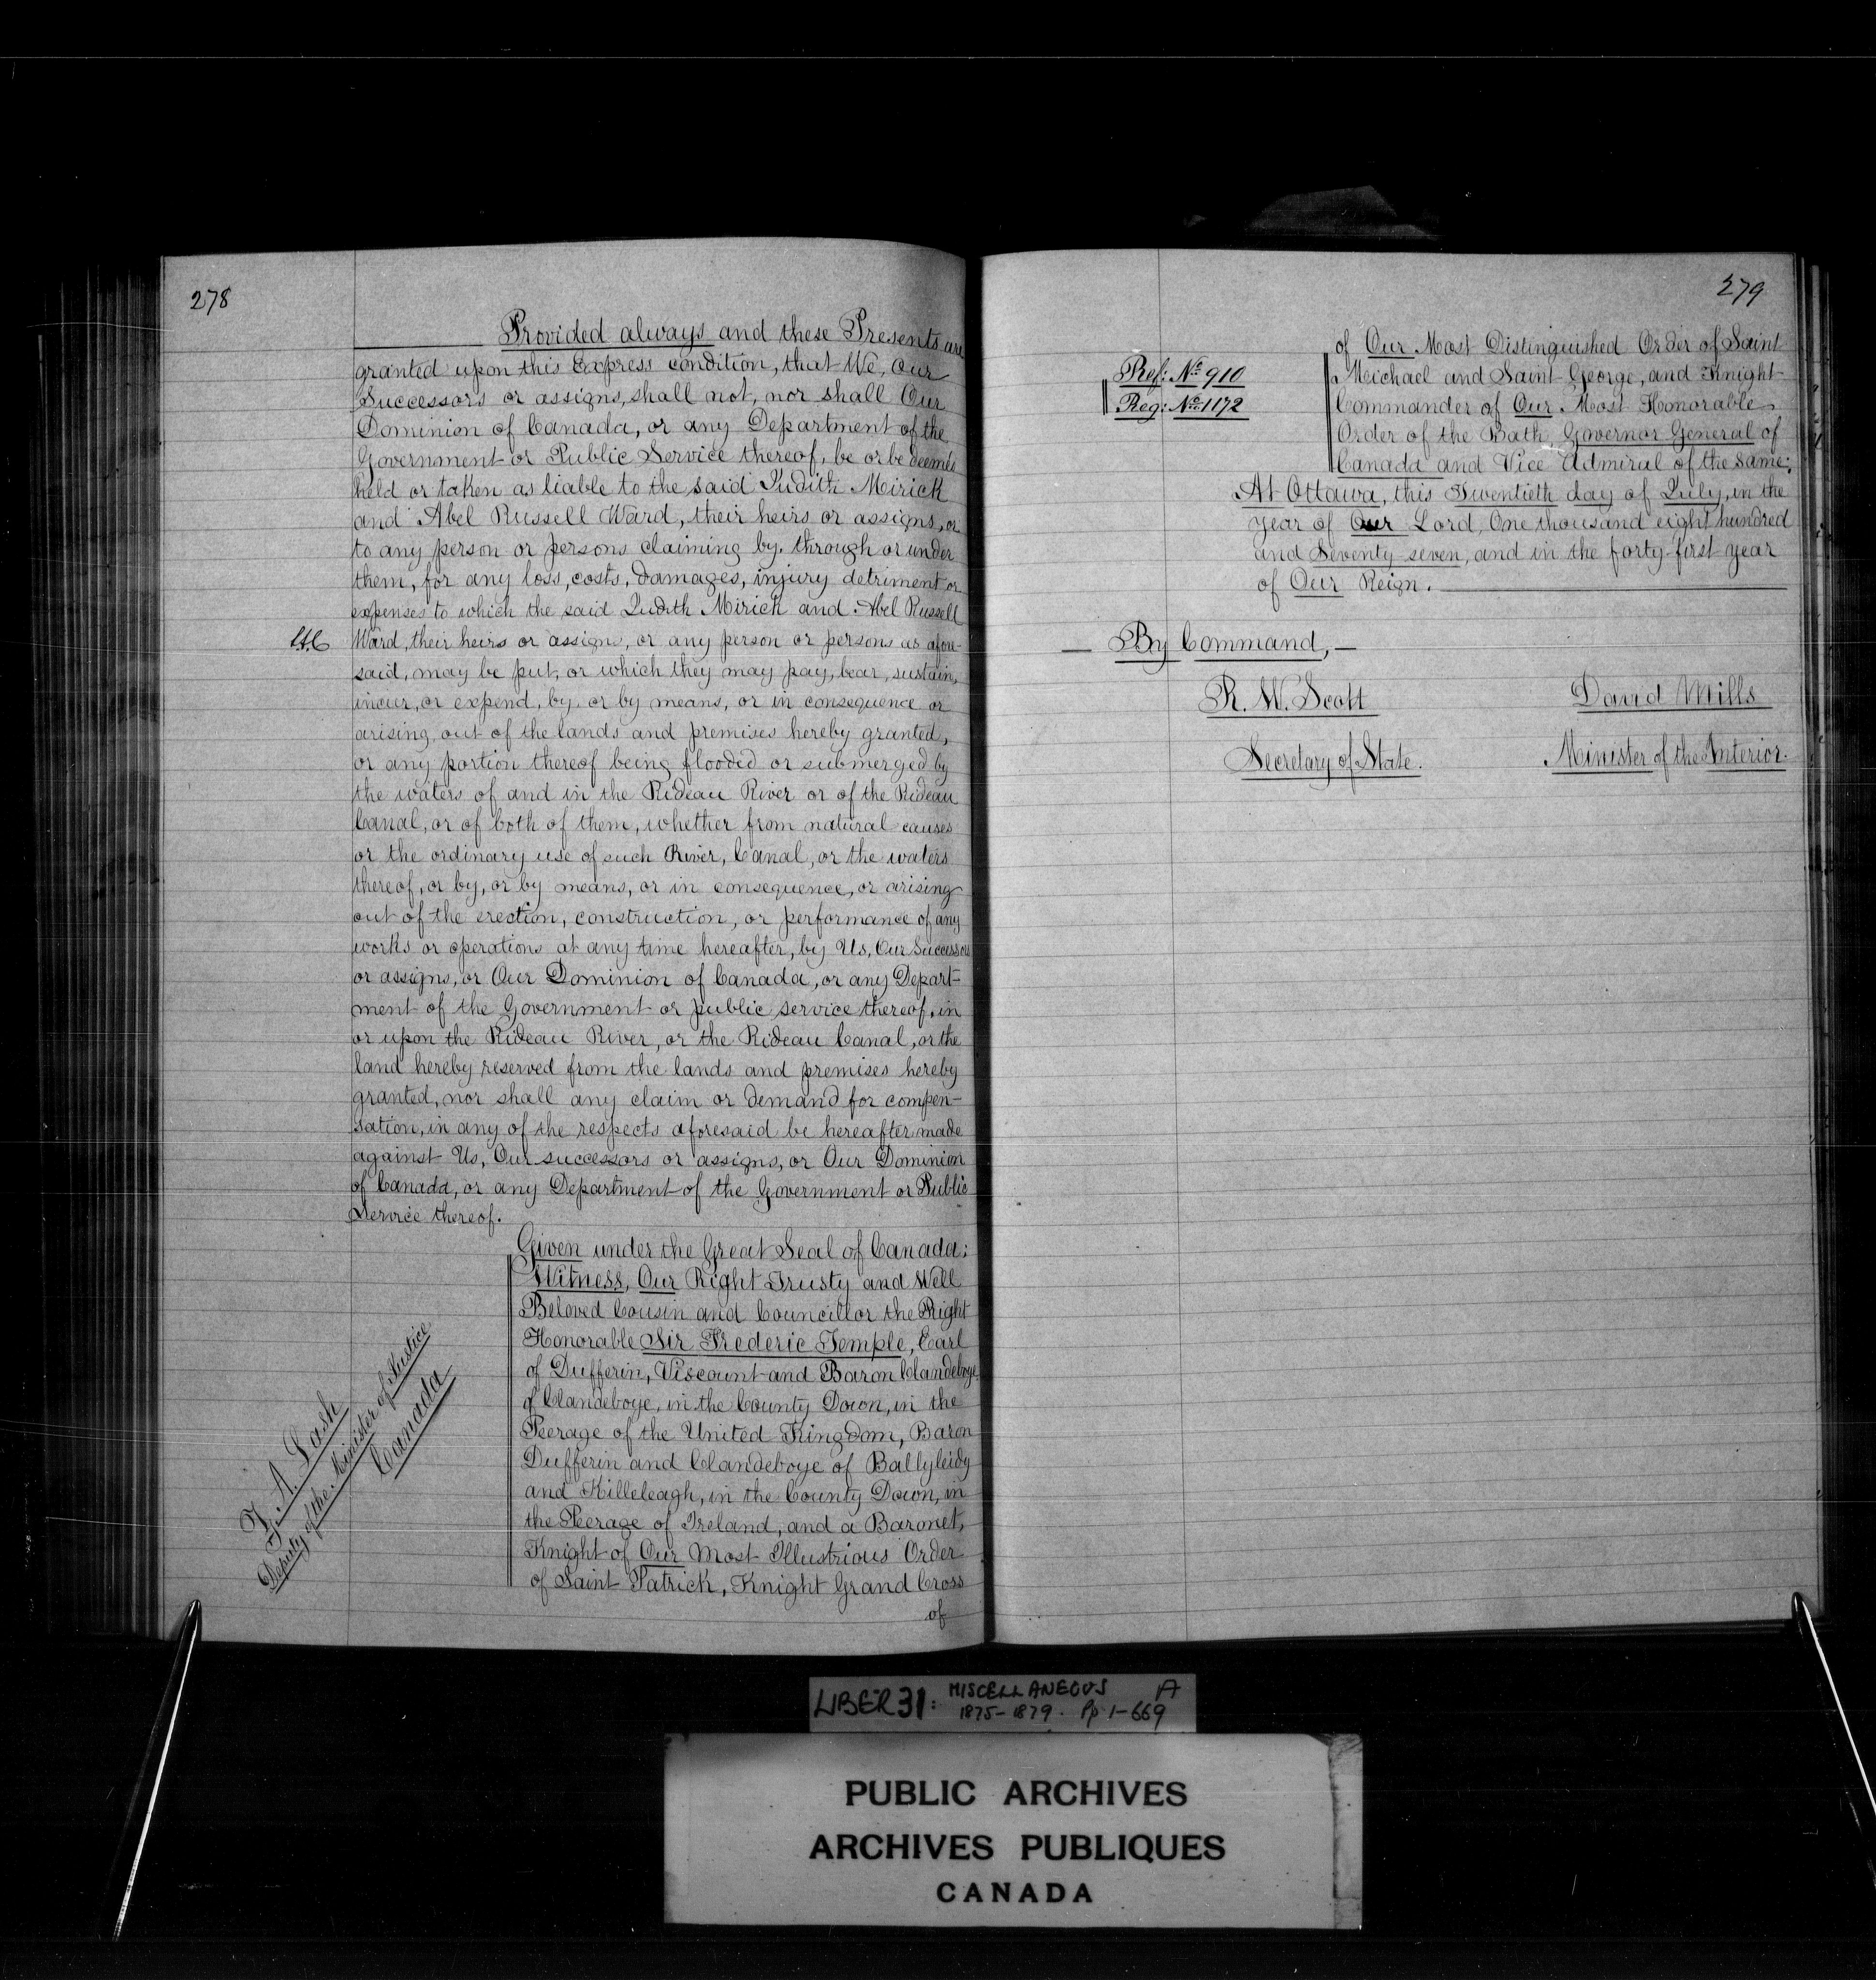 278
Provided always and these Presents are
granted upon this Express condition, that We, Our
Successors or assigns, shall not, nor shall Our
Dominion of Canada, or any Department of the
Government or Public Service thereof, be or be deemed
held or taken as liable to the said Judith Mirick
and Abel Russell Ward, their heirs or assigns, or
to any person or persons claiming by, through or under
them, for any loss, costs, damages, injury detriment or
expenses to which the said Judith Mirick and Abel Russell
Ward, their heirs or assign, or any person or persons as afore-
said, may be put, or which they may pay, bear, sustain,
incur, or expend, by, or by means, or in consequence or
arising out of the lands and premises hereby granted,
or any portion thereof being flooded or submerged by
the waters of and in the Rideau River or of the Rideau
Canal, or of both of them, whether from natural causes
or the ordinary use of such River, Canal, or the waters
thereof, or by, or by means, or in consequence, or arising
out of the erection, construction, or performance of any
works or operations at any time hereafter, by Us, Our Successors
or assigns, or Our Dominion of Canada, or any Depart-
ment of the Government or public service thereof, in
or upon the Rideau River, or the Rideau Canal, or the
land hereby reserved from the lands and premises hereby
granted, nor shall any claim or demand for compen-
sation, in any of the respects aforesaid be hereafter made
against Us, Our successors or assigns, or Our Dominion
of Canada, or any Department of the Government or Public
Service thereof.
Given under the Great Seal of Canada:
Witness, Our Right Trusty and Well
Beloved Cousin and Councillor the Right
Honorable Sir Frederic Temple, Earl
of Dufferin, Viscount and Baron Clandeboye
of Clandeboye, in the County Down, in the
Peerage of the United Kingdom, Baron
Dufferin and Clandeboye of Ballyleidy
and Killeleagh, in the County Down, in
the Peerage of Ireland, and a Baronet,
Knight of Our Most Illustrious Order
of Saint Patrick, Knight Grand Cross
of
Z. A. Lash
Deputy of the Minister of Justice
Canada
279
Ref: No. 910
Reg: No. 1172
of Our Most Distinguished Order of Saint
Michael and Saint George, and Knight
Commander of Our Most Honorable
Order of the Bath, Governor General of
Canada and Vice Admiral of the same:
At Ottawa, this Twentieth day of July, in the
year of Our Lord, One thousand eight hundred
and Seventy seven, and in the forty-first year
of Our Reign.
— By Command, —
R. W. Scott
Secretary of State.
David Mills
Minister of the Interior.
LIBER 31: MISCELLANEOUS A
1875-1879. Pp 1-669
PUBLIC ARCHIVES
ARCHIVES PUBLIQUES
CANADA